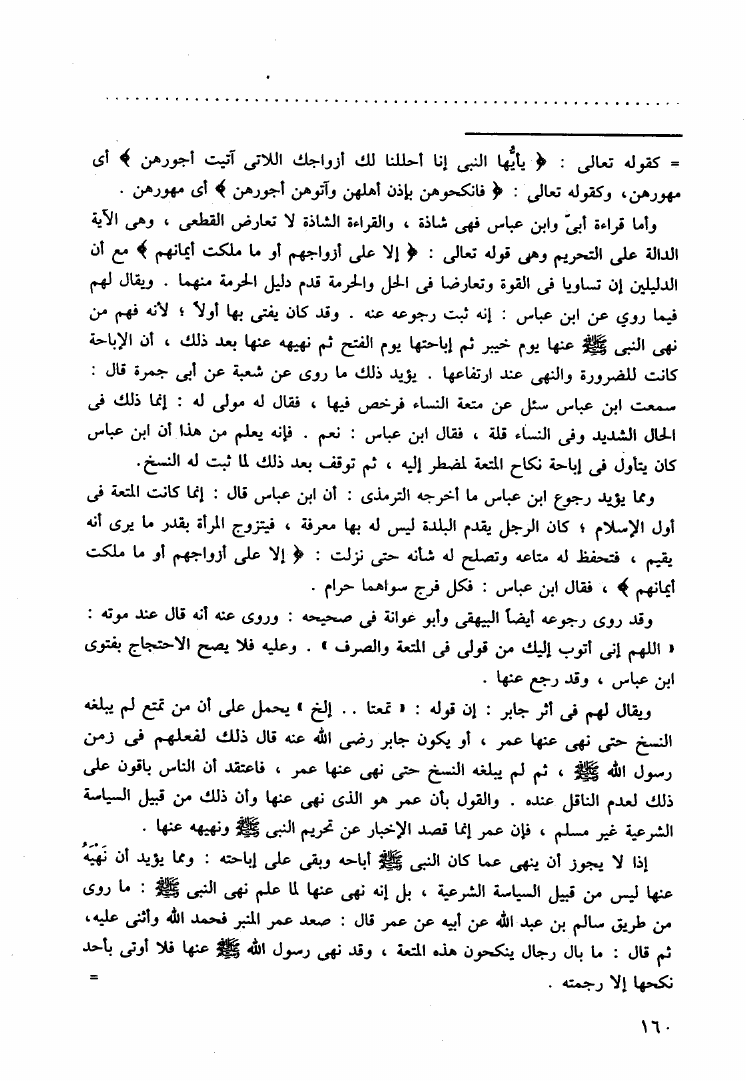 = كقوله تعالى : ﴿ يأيُّها النبى إنا أحللنا لك أزواجك اللاتى آتيت أجورهن ﴾ أى
مهورهن، وكقوله تعالى : ﴿ فانكحوهن بإذن أهلهن وآتوهن أجورهن ﴾ أى مهورهن .
وأما قراءة أبىّ وابن عباس فهى شاذة ، والقراءة الشاذة لا تعارض القطعى ، وهى الآية
الدالة على التحريم وهى قوله تعالى : ﴿ إلا على أزواجهم أو ما ملكت أيمانهم ﴾ مع أن
الدليلين إن تساويا فى القوة وتعارضا فى الحل والحرمة قدم دليل الحرمة منهما . ويقال لهم
فيما روي عن ابن عباس : إنه ثبت رجوعه عنه . وقد كان يفتى بها أولاً ؛ لأنه فهم من
نهى النبى ﷺ عنها يوم خيبر ثم إباحتها يوم الفتح ثم نهيهه عنها بعد ذلك ، أن الإباحة
كانت للضرورة والنهى عند ارتفاعها . يؤيد ذلك ما روى عن شعبة عن أبى جمرة قال :
سمعت ابن عباس سئل عن متعة النساء فرخص فيها ، فقال له مولى له : إنما ذلك فى
الحال الشديد وفى النساء قلة ، فقال ابن عباس : نعم . فإنه يعلم من هذا أن ابن عباس
كان يتأول فى إباحة نكاح المتعة لمضطر إليه ، ثم توقف بعد ذلك لما ثبت له النسخ.
ومما يؤيد رجوع ابن عباس ما أخرجه الترمذى : أن ابن عباس قال : إنما كانت المتعة فى
أول الإسلام ؛ كان الرجل يقدم البلدة ليس له بها معرفة ، فيتزوج المرأة بقدر ما يرى أنه
يقيم ، فتحفظ له متاعه وتصلح له شأنه حتى نزلت : ﴿ إلا على أزواجهم أو ما ملكت
أيمانهم ﴾ ، فقال ابن عباس : فكل فرج سواهما حرام .
وقد روى رجوعه أيضاً البيهقى وأبو عوانة فى صحيحه : وروى عنه أنه قال عند موته :
« اللهم إنى أتوب إليك من قولى فى المتعة والصرف » . وعليه فلا يصح الاحتجاج بفتوى
ابن عباس ، وقد رجع عنها .
ويقال لهم فى أثر جابر : إن قوله : « تمعتا . . إلخ » يحمل على أن من تمتع لم يبلغه
النسخ حتى نهى عنها عمر ، أو يكون جابر رضى الله عنه قال ذلك لفعلهم فى زمن
رسول الله ﷺ ، ثم لم يبلغه النسخ حتى نهى عنها عمر ، فاعتقد أن الناس باقون على
ذلك لعدم الناقل عنده . والقول بأن عمر هو الذى نهى عنها وأن ذلك من قبيل السياسة
الشرعية غير مسلم ، فإن عمر إنما قصد الإخبار عن تحريم النبى ﷺ ونهيهه عنها .
إذا لا يجوز أن ينهى عما كان النبى ﷺ أباحه وبقى على إباحته : ومما يؤيد أن نَهْيَهُ
عنها ليس من قبيل السياسة الشرعية ، بل إنه نهى عنها لما علم نهى النبى ﷺ : ما روى
من طريق سالم بن عبد الله عن أبيه عن عمر قال : صعد عمر المنبر فحمد الله وأثنى عليه،
ثم قال : ما بال رجال ينكحون هذه المتعة ، وقد نهى رسول الله ﷺ عنها فلا أوتى بأحد
نكحها إلا رجمته . =
١٦٠